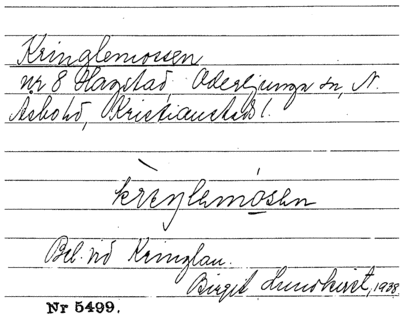 Kringlemossen
nr 8 Hagstad, Oderljunga sn, N.
Åsbo hd, Kristianstads l.
krεŋlemósən
Bel. vid Kringlan.
Birgit Lundkvist, 1938
Nr 5499.